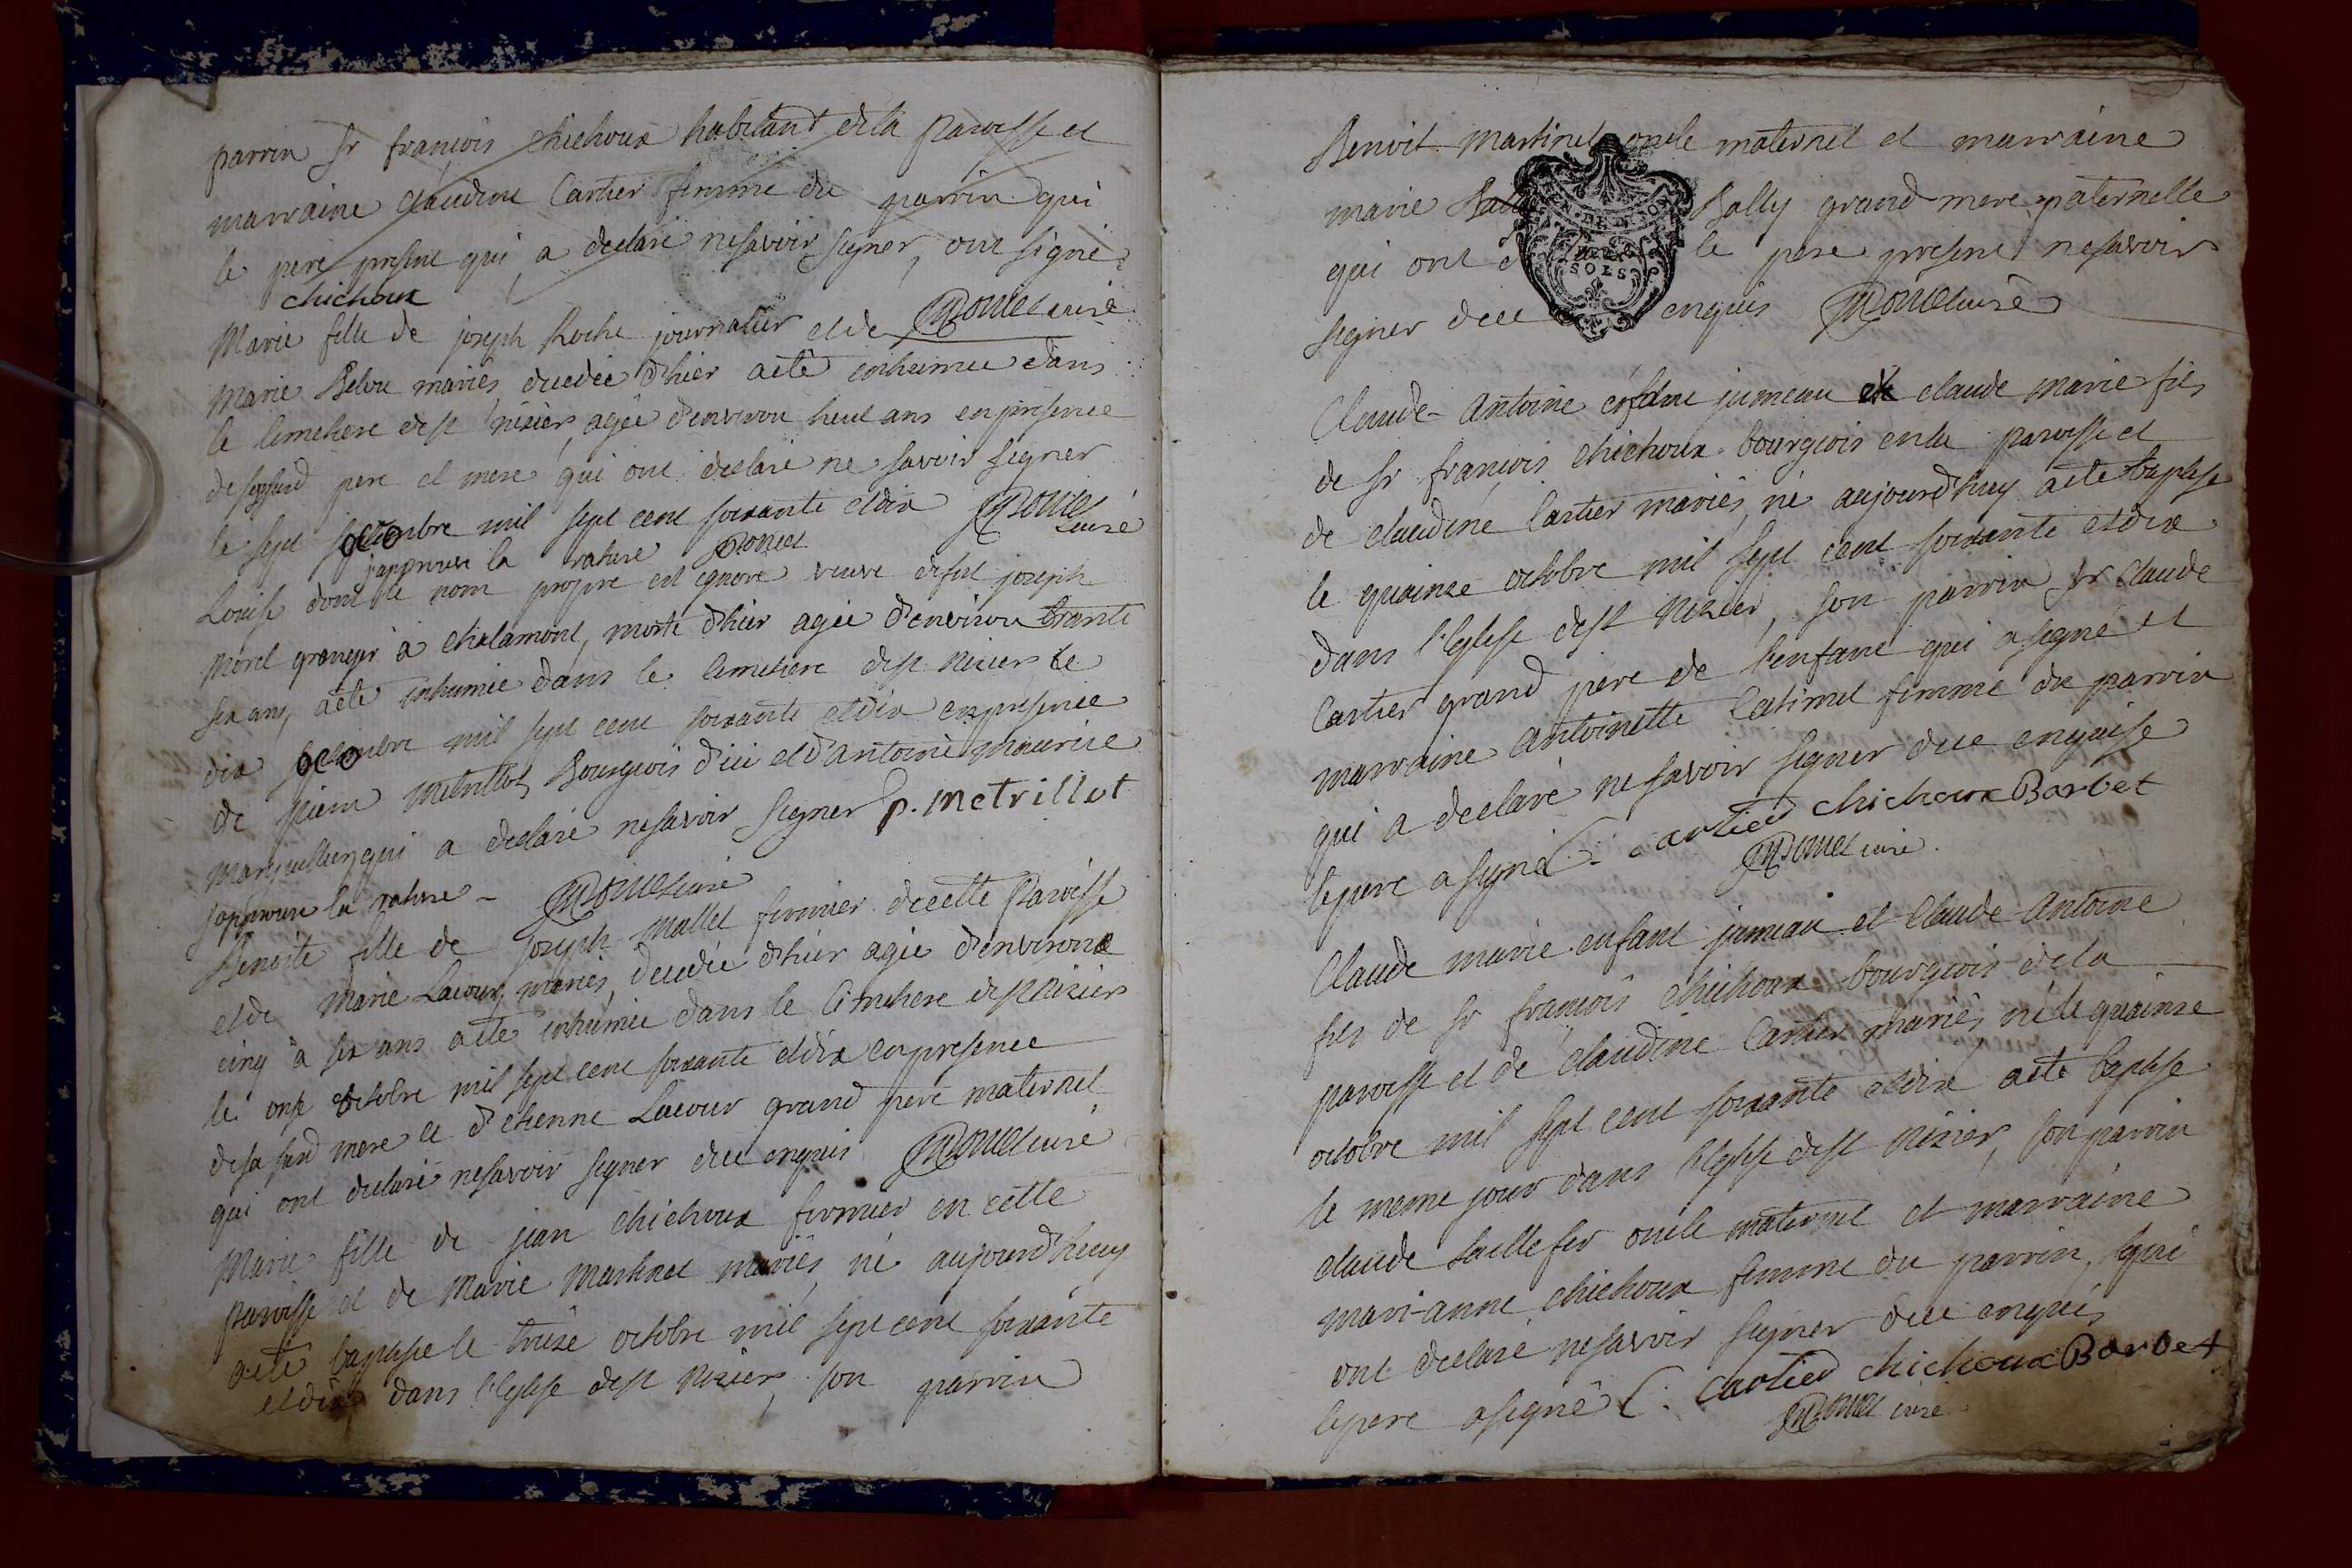 parrin sr françois chichoux habitant dela paroisse et
marraine claudine Cartier femme du parrin qui
le pere present qui a declaré nesavoir signer, ont signé
chichoux
Marie fille de joseph Roche journalier et de Monet curé
Marie Belou mariés decedée d'hier aété inhumée dans
le cimetiere dest nisier agée denviron huit ans enpresence
desesfusd pere et mere qui ont declaré ne savoir signer
le sept octombre mil sept cent soixante etdix Monet curé
japprouve la rature Monet
Louise dont le nom propre est ignoré veuve defut joseph
Morel granger à chalamont, morte d'hier agée d'environ trante
six ans, aété inhumée dans le cimetiere dest nisier le
dix octombre mil sept cent soixante etdix enpresence
de pierre metrillot Bourgeois d'ici etd'antoine maurice
marguillier qui a declaré nesavoir signer p. metrillot
japprouve la rature - Monet curé
Benoite fille de joseph mallet fermier decette paroisse
etde Marie Lacour, mariés, decedée d'hier agée d'environ
cinq à six ans aété inhumée dans le cimetiere dest nisier
le onse octobre mil sept cent soixante etdix enpresence
desa susd mere et d'etienne Lacour grand pere maternel
qui ont declaré nesavoir signer dece enquis Monet curé
Marie fille de jean chichoux fermier en cette
paroisse et de Marie Martinet mariés, né aujourdhuy
aété baptisée le treise octobre mil sept cent soixante
etdix dans l'Eglise dest nisier, son parrin
Benoit Martinet oncle maternel et marraine
marie Bally grand mere paternelle
qui ont le pere present nesavoir
signer dece enquis Monet curé
Claude-Antoine enfant jumeau et claude marie fils
de sr françois chichoux bourgeois enla paroisse et
de claudine Cartier mariés, né aujourdhuy aété baptisé
le quainse octobre mil sept cent soixante etdix
dans l'Eglise dest nisier, son parrin sr claude
Cartier grand pere de l'enfant qui a signé et
marraine antoinette femme du parrin
qui a declaré nesavoir signer dece enquise
lepere asigné cartier chichoux Barbet
Monet curé.
Claude marie enfant jumeau et Claude-antoine
fils de sr françois chichoux bourgeois dela
paroisse et de claudine Cartier mariés, né le quainse
octobre mil sept cent soixante etdix aété baptisé
le meme jour dans l'Eglise dest nisier, son parrin
claude taillefer oncle maternel et marraine
mari-anne chichoux femme du parrin, qui
ont declaré nesavoir signer dece enquis
lepere asigné cartier chichoux Barbet
Monet curé